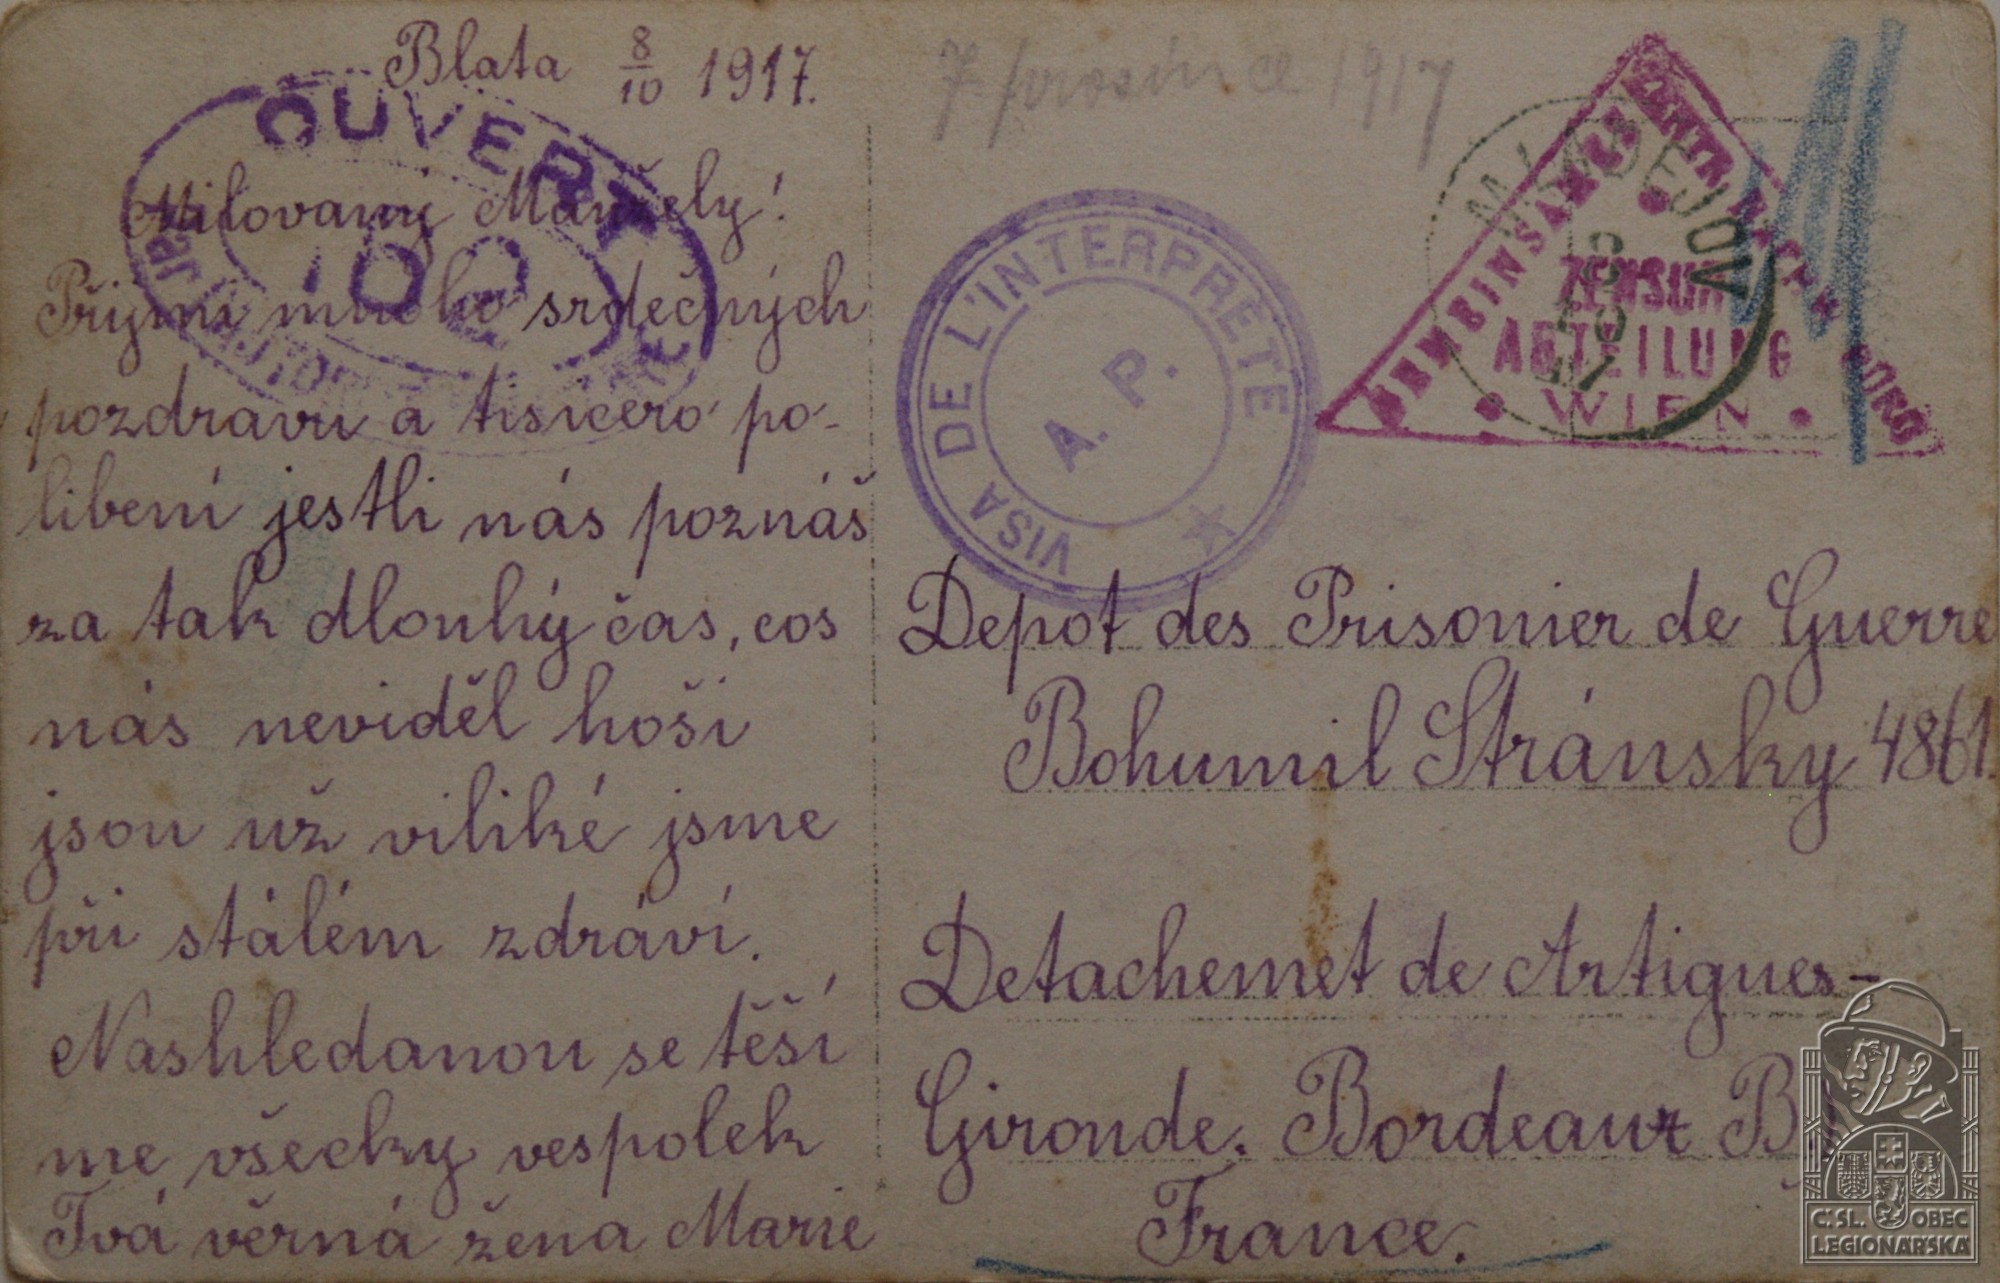 Blata 8/10 1917.
Milovaný Manžely!
Přijmi mnoho srdečných
pozdravu a tisiceró po-
libení jestli nás poznáš
za tak dlouhý čas, cos
nás neviděl hoši
jsou už viliké jsme
při stálém zdráví.
Nashledanou se těší
me všecky vespolek
Tvá věrná žena Marie
OUVERT
7. prosince 1917
VISA DE L'INTERPRÈTE
A. P.
ZENSUR
ABTEILUNG
WIEN
Depot des Prisonier de Guerre
Bohumil Stránsky 4861
Detachemet de Artigues-
Gironde. Bordeaux
France.
Č. SL. OBEC
LEGIONÁŘSKÁ